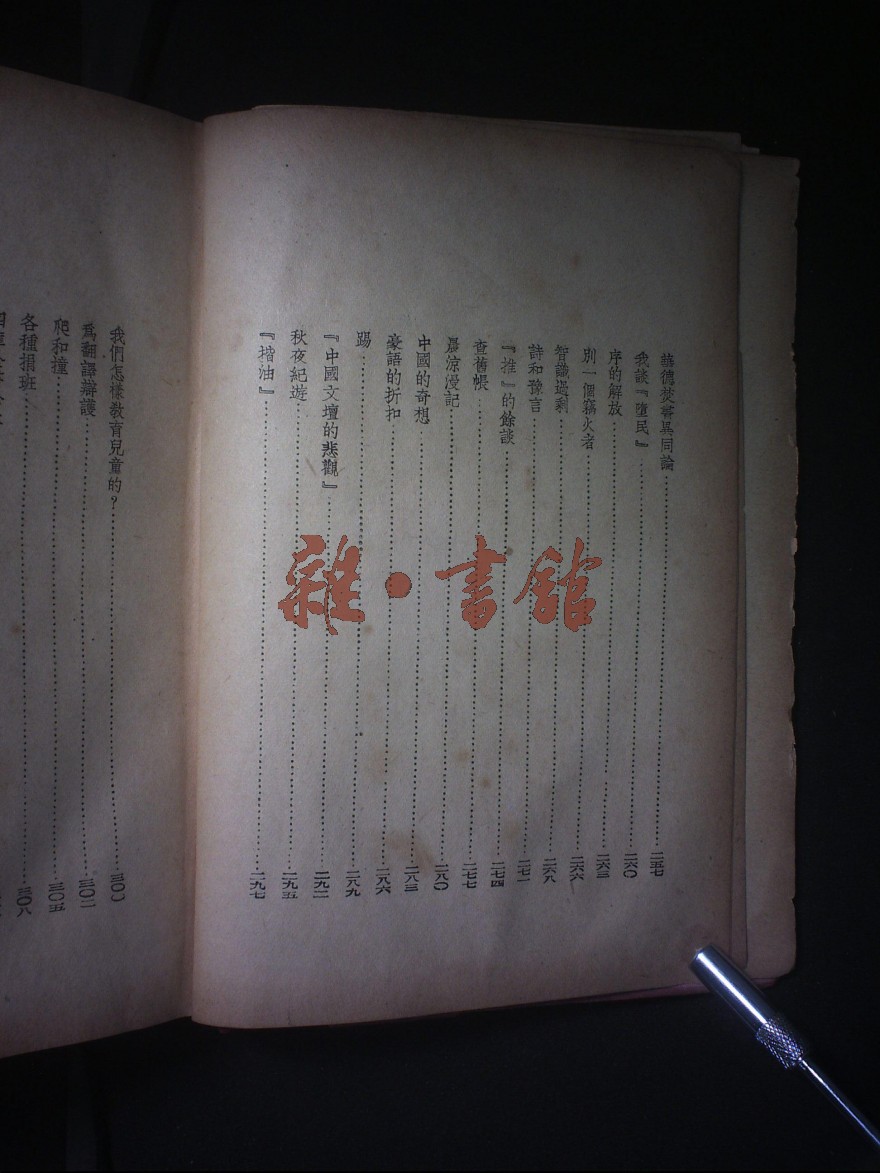 華德焚書異同論……二五七
我談『墮民』……二六〇
序的解放……二六三
別一個竊火者……二六六
智識過剩……二六八
詩和豫言……二七一
『推』的餘談……二七四
查舊帳……二七七
晨涼漫記……二八〇
中國的奇想……二八三
豪語的折扣……二八六
踢……二八九
『中國文壇的悲觀』……二九二
秋夜紀遊……二九五
『揩油』……二九七
我們怎樣教育兒童的？……三〇〇
爲翻譯辯護……三〇二
爬和撞……三〇五
各種捐班……三〇八
雜·書館